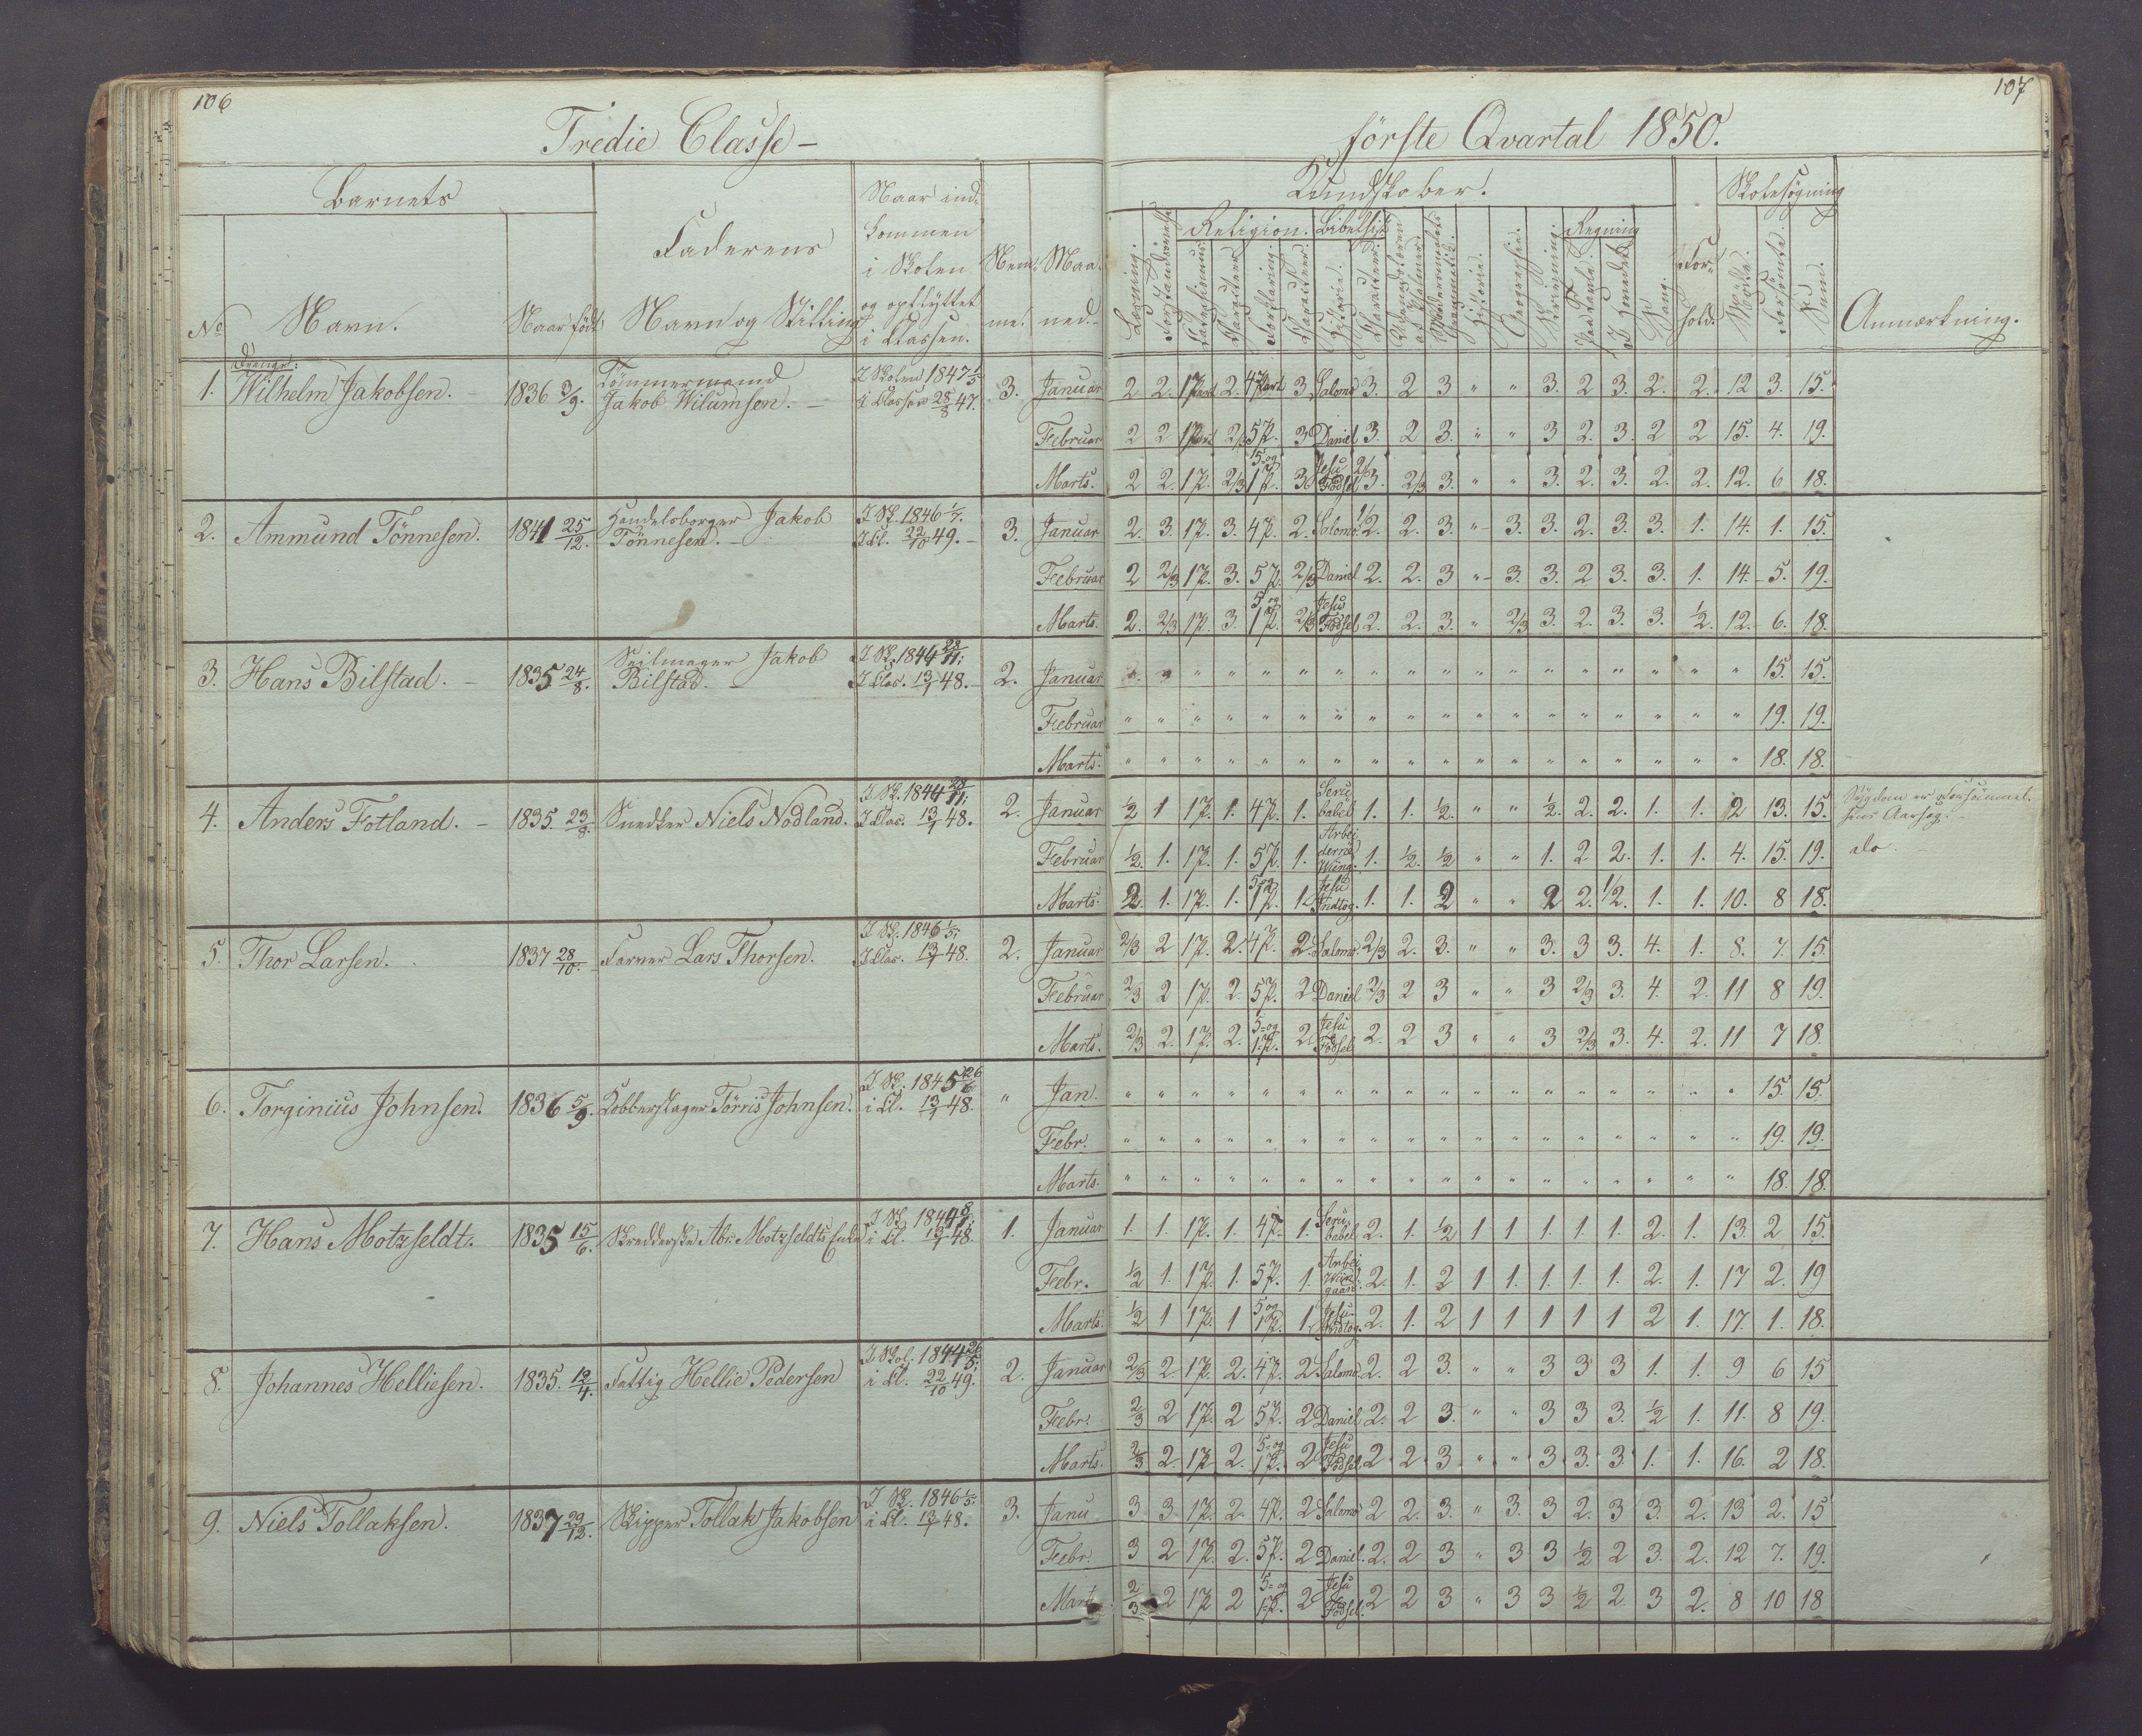 106
107
Tredie Classe -
förste Qvartal 1850.
Barnets
Faderens
Naar ind-
kommen
i Skolen
og opflyttet
i Classen.
Kundskaber.
Skolesøgning
Religion. Bibelhist.
Regning
No Navn. Naar född Navn og Stilling Nem-me. Maa-ned. Læsning. Forstandsövelse Forklaring. Historie. Geographie. Skrivning. Sang. For-hold. Mödte. Forsömte. Sum. Anmærkning.
Drenge:
1. Wilhelm Jakobsen. 1836 3/9. Tömmermand I Skolen 1847 1/5
Jakob Wilumsen. - i Classen 28/8 47. 3. Januar 2 2. 1 Part 2. 4 Part 3 Salomo 3. 2 3 " " 3. 2 3. 2. 2. 12 3. 15.
Februar 2 2 1 Part 2/3 5 P. 3 Daniel 3. 2 3. " " 3 2. 3. 2 2 15. 4. 19.
Marts. 2 2. 1 P. 2/3 5 og 1 P. 3 Jesu Födsel 2/3. 2/3 3. " " 3. 2. 3. 2. 2. 12. 6 18.
2. Ammund Tönnesen. 1841 25/12. Handelsborger Jakob I Sk. 1846 1/7.
Tönnesen. - I Cl. 22/10 49. - 3. Januar 2. 3. 1 P. 3. 4 P. 2. Salomo 1/2. 2. 3. " 3. 3. 2. 3. 3. 1. 14. 1. 15.
Februar 2 2/3 1 P. 3. 5 P. 2/3 Daniel 2. 2. 3 " 3. 3. 2 3. 3. 1. 14. 5. 19.
Marts. 2. 2/3 1 P. 3. 5 og 1 P. 2/3 Jesu Födsel 2. 2. 3. " 2/3 3. 2. 3. 3. 1/2. 12. 6. 18.
3. Hans Bilstad. - 1835 24/8. Seilmager Jakob I Sk. 1844 28/11;
Bilstad. - I Clas. 13/1 48. 2. Januar " " " " " " " " " " " " " " " " " " 15. 15.
Februar " " " " " " " " " " " " " " " " " " 19. 19.
Marts. " " " " " " " " " " " " " " " " " " 18. 18.
4. Anders Fotland. - 1835. 23/8. Snedker Niels Nodland. I Sk. 1844 28/11;
I Clas. 13/1 48. 2. Januar 1/2 1 1 P. 1. 4 P. 1. Serubabel 1. 1. 1/2. " " 1/2. 2. 2. 1. 1. 2 13. 15. Sygdom er Forsömmel-
sens Aarsag. -
Februar 1/2. 1. 1 P. 1. 5 P. 1. Arbeiderne Wiing. 1. 1/2. 1/2 " " 1. 2 2. 1. 1. 4. 15. 19. do. -
Marts. 2. 1. 1 P. 1. 5 og 1 P. 1. Jesu Indtog. 1. 1. 2 " " 2 2. 1/2. 1. 1. 10. 8 18.
5. Thor Larsen. 1837 28/10. Farver Lars Thorsen. I Sk. 1846 1/5;
I Clas. 13/1 48. 2. Januar 2/3 2 1 P. 2. 4 P. 2. Salomo. 2/3 2. 3. " " 3. 3 3. 4. 1. 8. 7. 15.
Februar 2/3 2 1 P. 2. 5 P. 2 Daniel 2/3 2 3 " " 3 2/3 3. 4. 2. 11 8 19.
Marts. 2/3 2. 1 P. 2. 5 og 1 P. 2 Jesu Födsel 2. 2 3 " " 3 2/3 3. 4. 2. 11 7 18.
6. Torginius Johnsen. 1836 5/9. Kobberslager Törris Johnsen. I Sk. 1845 26/6
i Cl. 13/1 48. " Jan. " " " " " " " " " " " " " " " " " " 15. 15.
Febr. " " " " " " " " " " " " " " " " " " 19. 19.
Marts. " " " " " " " " " " " " " " " " " " 18. 18.
7. Hans Motzfeldt. 1835 15/6. Skredderske Abr. Motzfeldts Enke I Sk. 1844
i Cl. 13/1 48. 1. Januar 1. 1. 1 P. 1. 4 P. 1. Serubabel 2. 1. 1/2 1 1 1. 1. 1. 2. 1. 13. 2 15.
Febr. 1/2 1. 1 P. 1. 5 P. 1. Arbei. Wiingaard. 2. 1. 2 1 1. 1. 1. 1. 2. 1. 17 2. 19
Marts. 1/2 1 1 P. 1 5 og 1 P. 1. Jesu Indtog. 2. 1. 2 1 1 1 1 1 2 1. 17. 1. 18.
8. Johannes Helliesen. 1835. 12/4. Fattig Hellie Pedersen I Skol. 1844 26/5;
i Cl. 22/10 49. 2. Januar 2/3 2. 1 P. 2. 4 P. 2 Salomo. 2. 2 3. " " 3 3 3 1. 1. 9 6 15
Febr. 2/3 2 1 P. 2 5 P. 2 Daniel 2. 2 3. " " 3 3 3. 1/2 1. 11. 8 19.
Marts. 2/3 2. 1 P. 2. 5 og 1 P. 2 Jesu Födsel 2 2 3. " " 3 3. 3 1. 1. 16. 2 18.
9. Niels Tollaksen. 1837 29/12. Skipper Tollak Jakobsen I Sk. 1846 1/5.
i Cl. 13/1 48. 3. Janu 3 3 1 P. 2 4 P. 2 Salomo 2 2. 3. " 3. 3 2. 3 3. 2. 13 2. 15
Febr. 3 2 1 P. 2. 5 P. 2 Daniel. 2. 2 3 " 3 3 1/2 2 3. 2. 12 7. 19.
Marts 2/3 2 1 P 2 5 og 1 P. 2 Jesu Födsel. 2 2 3 " 3 3 1/2 2. 3 2. 8 10 18